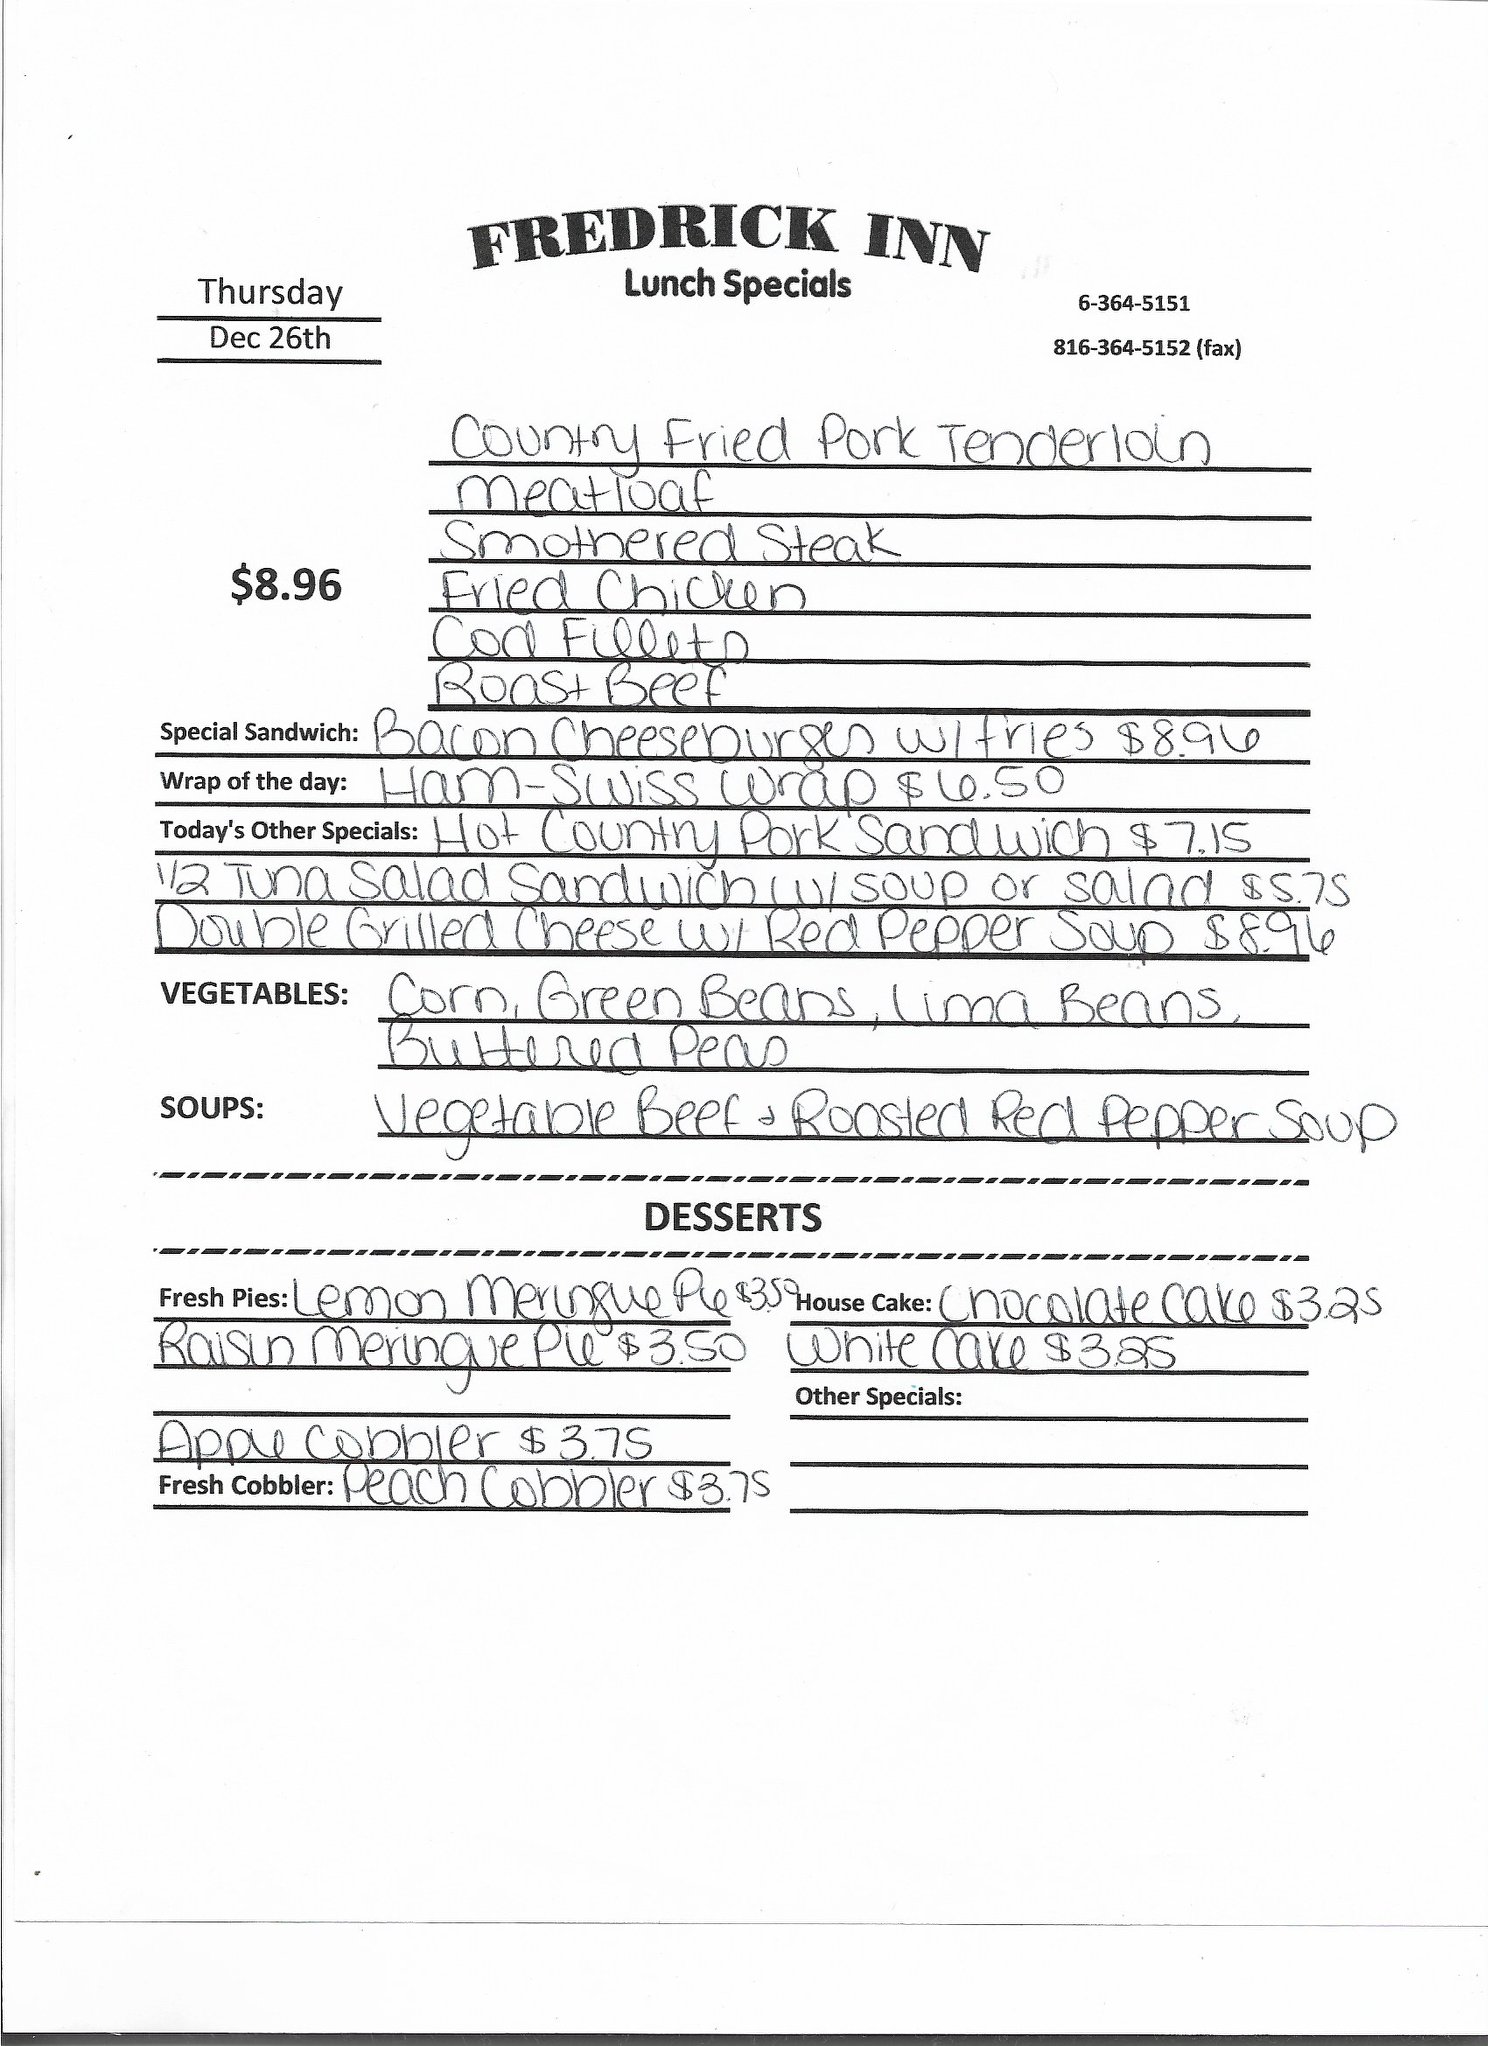 FREDRICK INN
Lunch Specials
Thursday
Dec 26th
6-364-5151
816-364-5152 (fax)
Country Fried Pork Tenderloin
Meatloaf
Smothered Steak
$8.96
Fried Chicken
Cod Fillets
Roast Beef
Special Sandwich: Bacon Cheeseburger w/ fries $8.96
Wrap of the day: Ham-Swiss Wrap $6.50
Today's Other Specials: Hot Country Pork Sandwich $7.15
1/2 Tuna Salad Sandwich w/ soup or salad $5.75
Double Grilled Cheese w/ Red Pepper Soup $8.96
VEGETABLES: Corn, Green Beans, Lima Beans,
Buttered Peas
SOUPS: Vegetable Beef & Roasted Red Pepper Soup
DESSERTS
Fresh Pies: Lemon Meringue Pie $3.50
Raisin Meringue Pie $3.50
Apple Cobbler $3.75
Fresh Cobbler: Peach Cobbler $3.75
House Cake: Chocolate Cake $3.25
White Cake $3.25
Other Specials: